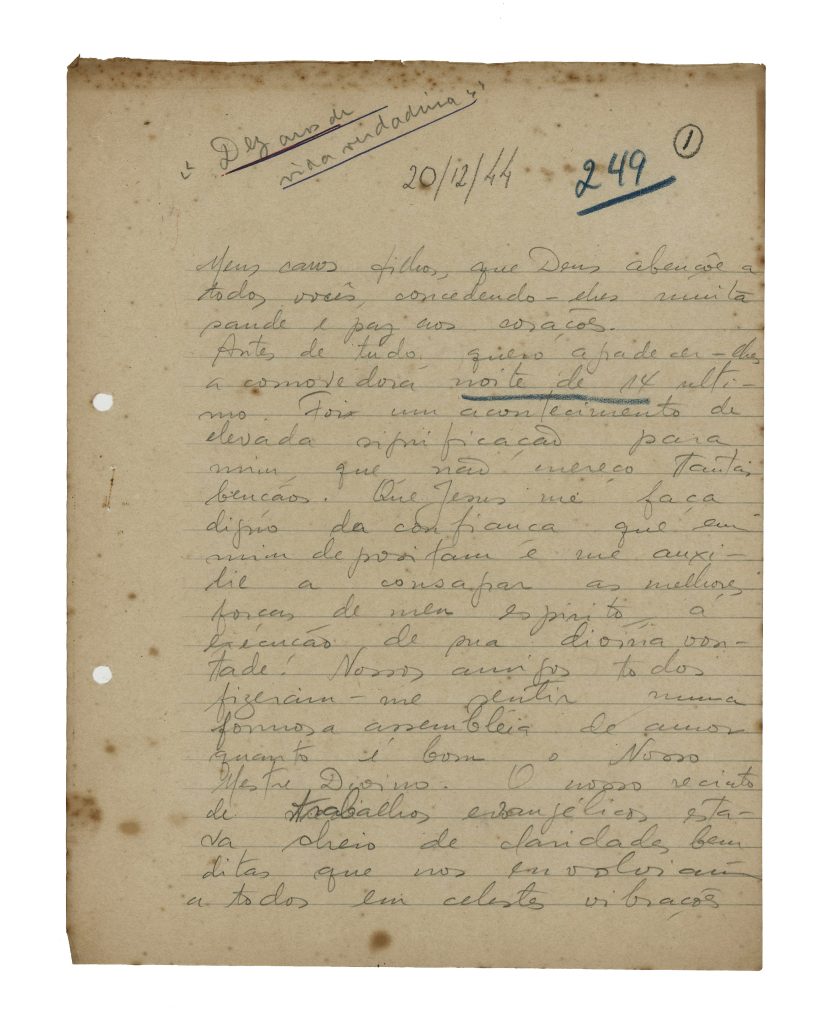 "Dez anos de
vida verdadeira"
20/12/44
249
1
Meus caros filhos, que Deus abençôe a
todos vocês, concedendo-lhes muita
saude e paz aos corações.
Antes de tudo quero agradecer-lhes
a comovedora noite de 14 ulti-
mo. Foi um acontecimento de
elevada significação para
mim que não mereço tantas
bençãos. Que Jesus me faça
digno da confiança que em
mim depositam e me auxi-
lie a consagrar as melhores
forças de meu espirito, á
execução de sua divina von-
tade! Nossos amigos todos
fizeram-me sentir numa
formosa assembléia de amor
quanto é bom o Nosso
Mestre Divino. O nosso recinto
de trabalhos evangélicos esta-
va cheio de claridades bem
ditas que nos envolviam
a todos em celestes vibrações